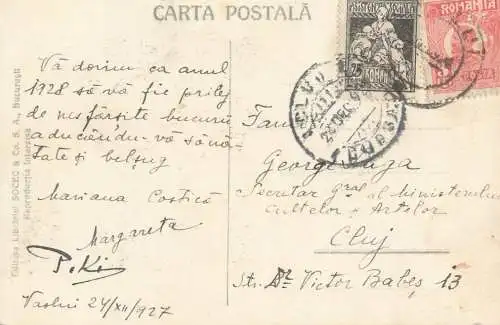 CARTA POSTALĂ
Vă dorim ca anul
1928 să vă fie prilej
de nesfârșite bucurii
aducându-vă sănă-
tate și belșug
Mariana Costică
Margareta
Vaslui 24/XII/927
Editura Librăriei SOCEC & Co. S. A., București
Reproducția interzisă
ROMANIA
POSTA
25
CLUJ
Fam
George
Secretar gral al Ministerului
Cultelor și Artelor
Cluj
Str. Dr Victor Babeș 13